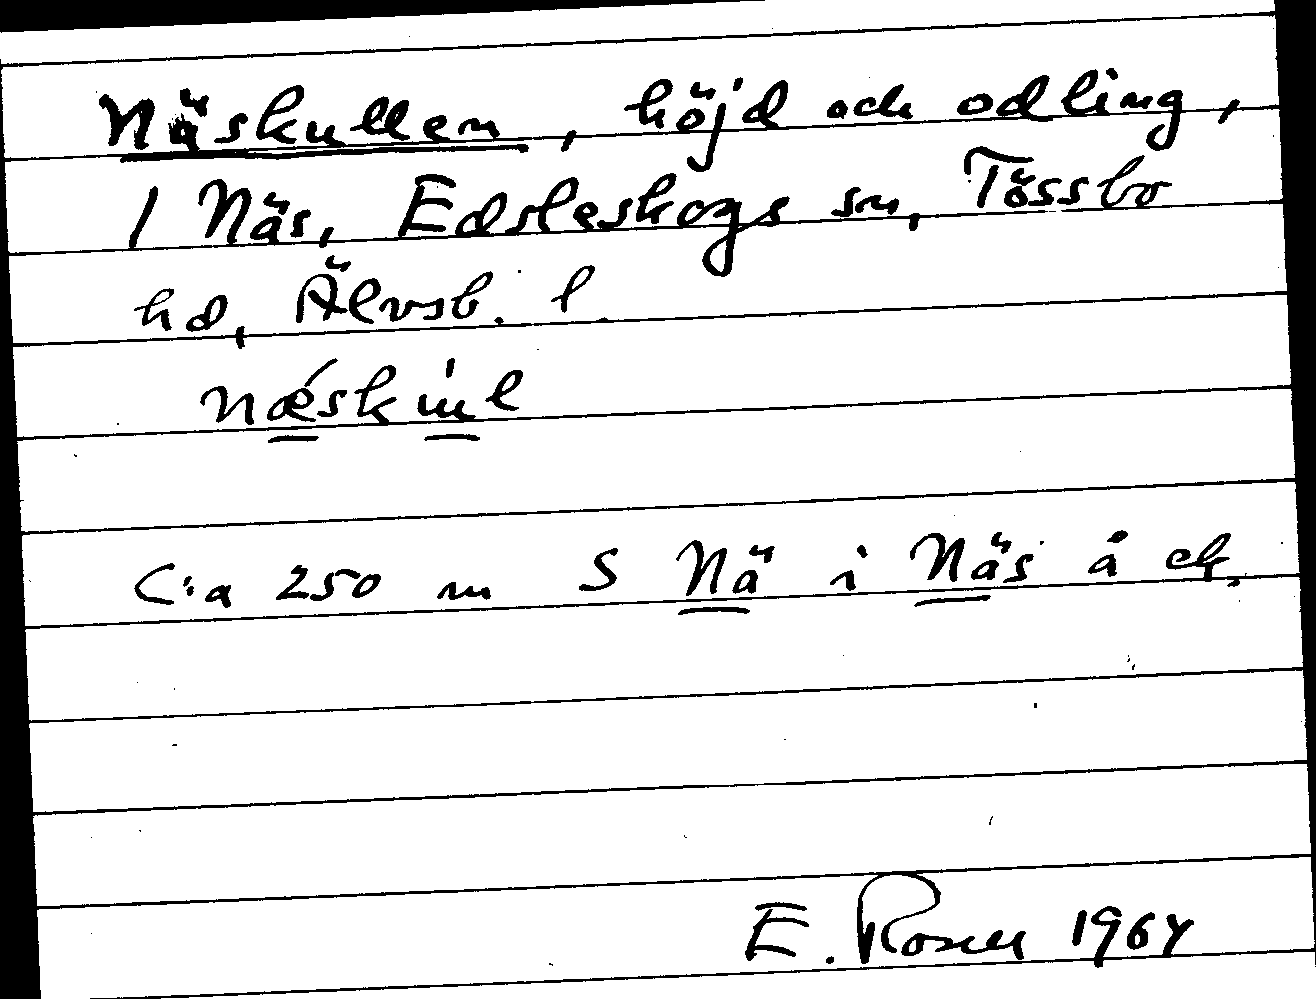 Näskullen, höjd och odling,
1 Näs, Edsleskogs sn, Tössbo
hd, Älvsb. l.
C:a 250 m S Nä i Näs å ek.
E. Rosell 1964